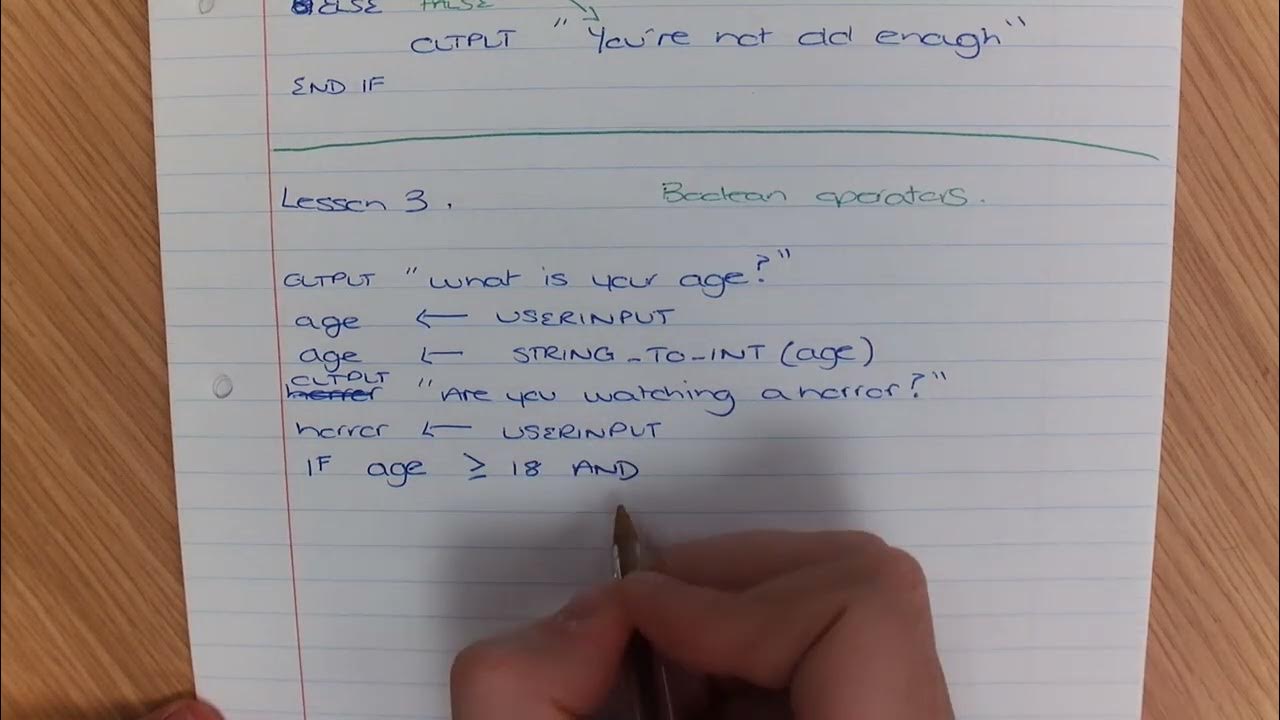 ELSE FALSE
OUTPUT "You're not old enough"
END IF
Lesson 3. Boolean operators.
OUTPUT "What is your age?"
age ← USERINPUT
age ← STRING_TO_INT (age)
OUTPUT "Are you watching a horror?"
horror ← USERINPUT
IF age ≥ 18 AND